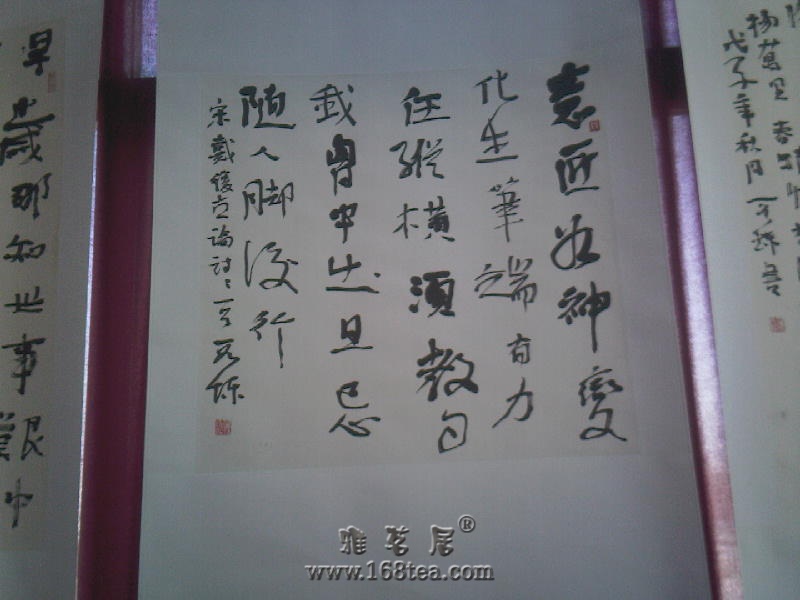 楊萬里春晴懷
戊子年秋月
意匠如神變
化生筆端有力
任縱橫須教自
我胸中出且忌
随人脚後行
宋戴復古論詩
早歲那知世事艱中
雅茗居®
www.168tea.com